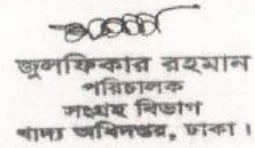 জুলফিকার রহমান
পরিচালক
সংগ্রহ বিভাগ
খাদ্য অধিদপ্তর, ঢাকা।